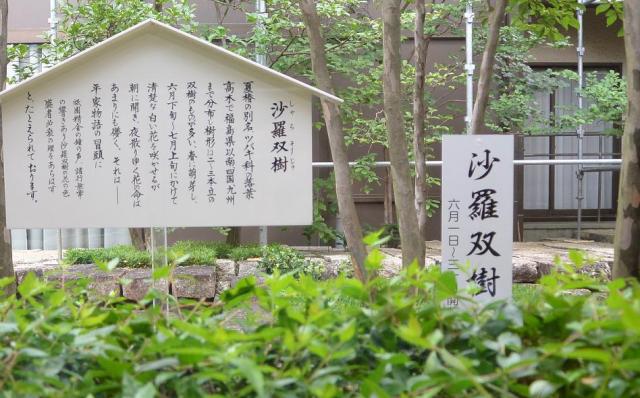 沙羅双樹
しゃらそうじゅ
夏椿の別名、ツバキ科の落葉
高木で福島県以南、四国、九州
まで分布し、樹形は二~三本立の
双樹のものが多い。春に萌芽し、
六月下旬~七月上旬にかけて
清楚な白い花を咲かせるが
朝に開き、夜散りゆく花の命は
あまりにも儚く、それは――
平家物語の冒頭に
祇園精舎の鐘の声、諸行無常
の響きあり沙羅双樹の花の色、
盛者必衰の理をあらはす
と、たとえられております。
沙羅双樹
六月一日~